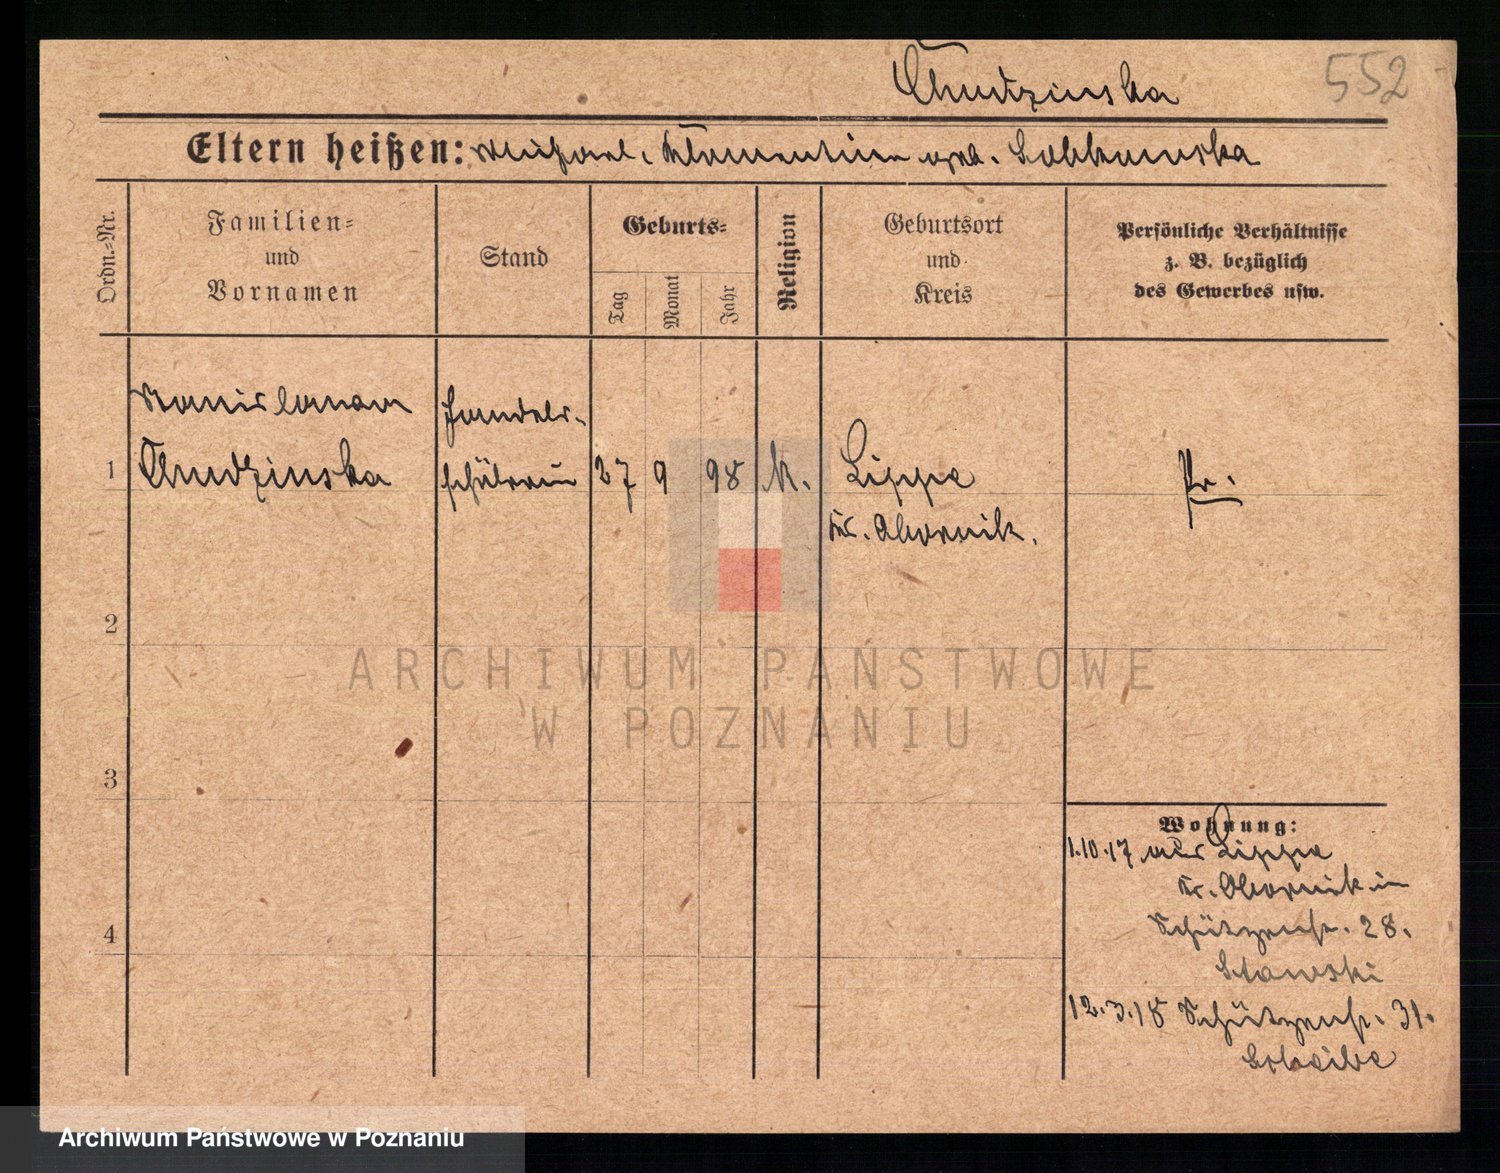 Chudzinska
552
Eltern heißen: Michael, Klementine geb. Sobkowska
Ordn.-Nr.
Familien-
und
Vornamen
Stand
Geburts-
Tag
Monat
Jahr
Religion
Geburtsort
und
Kreis
Persönliche Verhältnisse
z. B. bezüglich
des Gewerbes usw.
1
Stanislawa
Chudzinska
Handels-
schülerin
27
9
98
k.
Lippa
Kr. Obornik.
Pr.
2
3
4
Wohnung:
1.10.17 aus Lippa
Kr. Obornik in
Schützenstr. 28.
Stawski
12.3.18 Schützenstr. 31.
ARCHIWUM PAŃSTWOWE
W POZNANIU
Archiwum Państwowe w Poznaniu